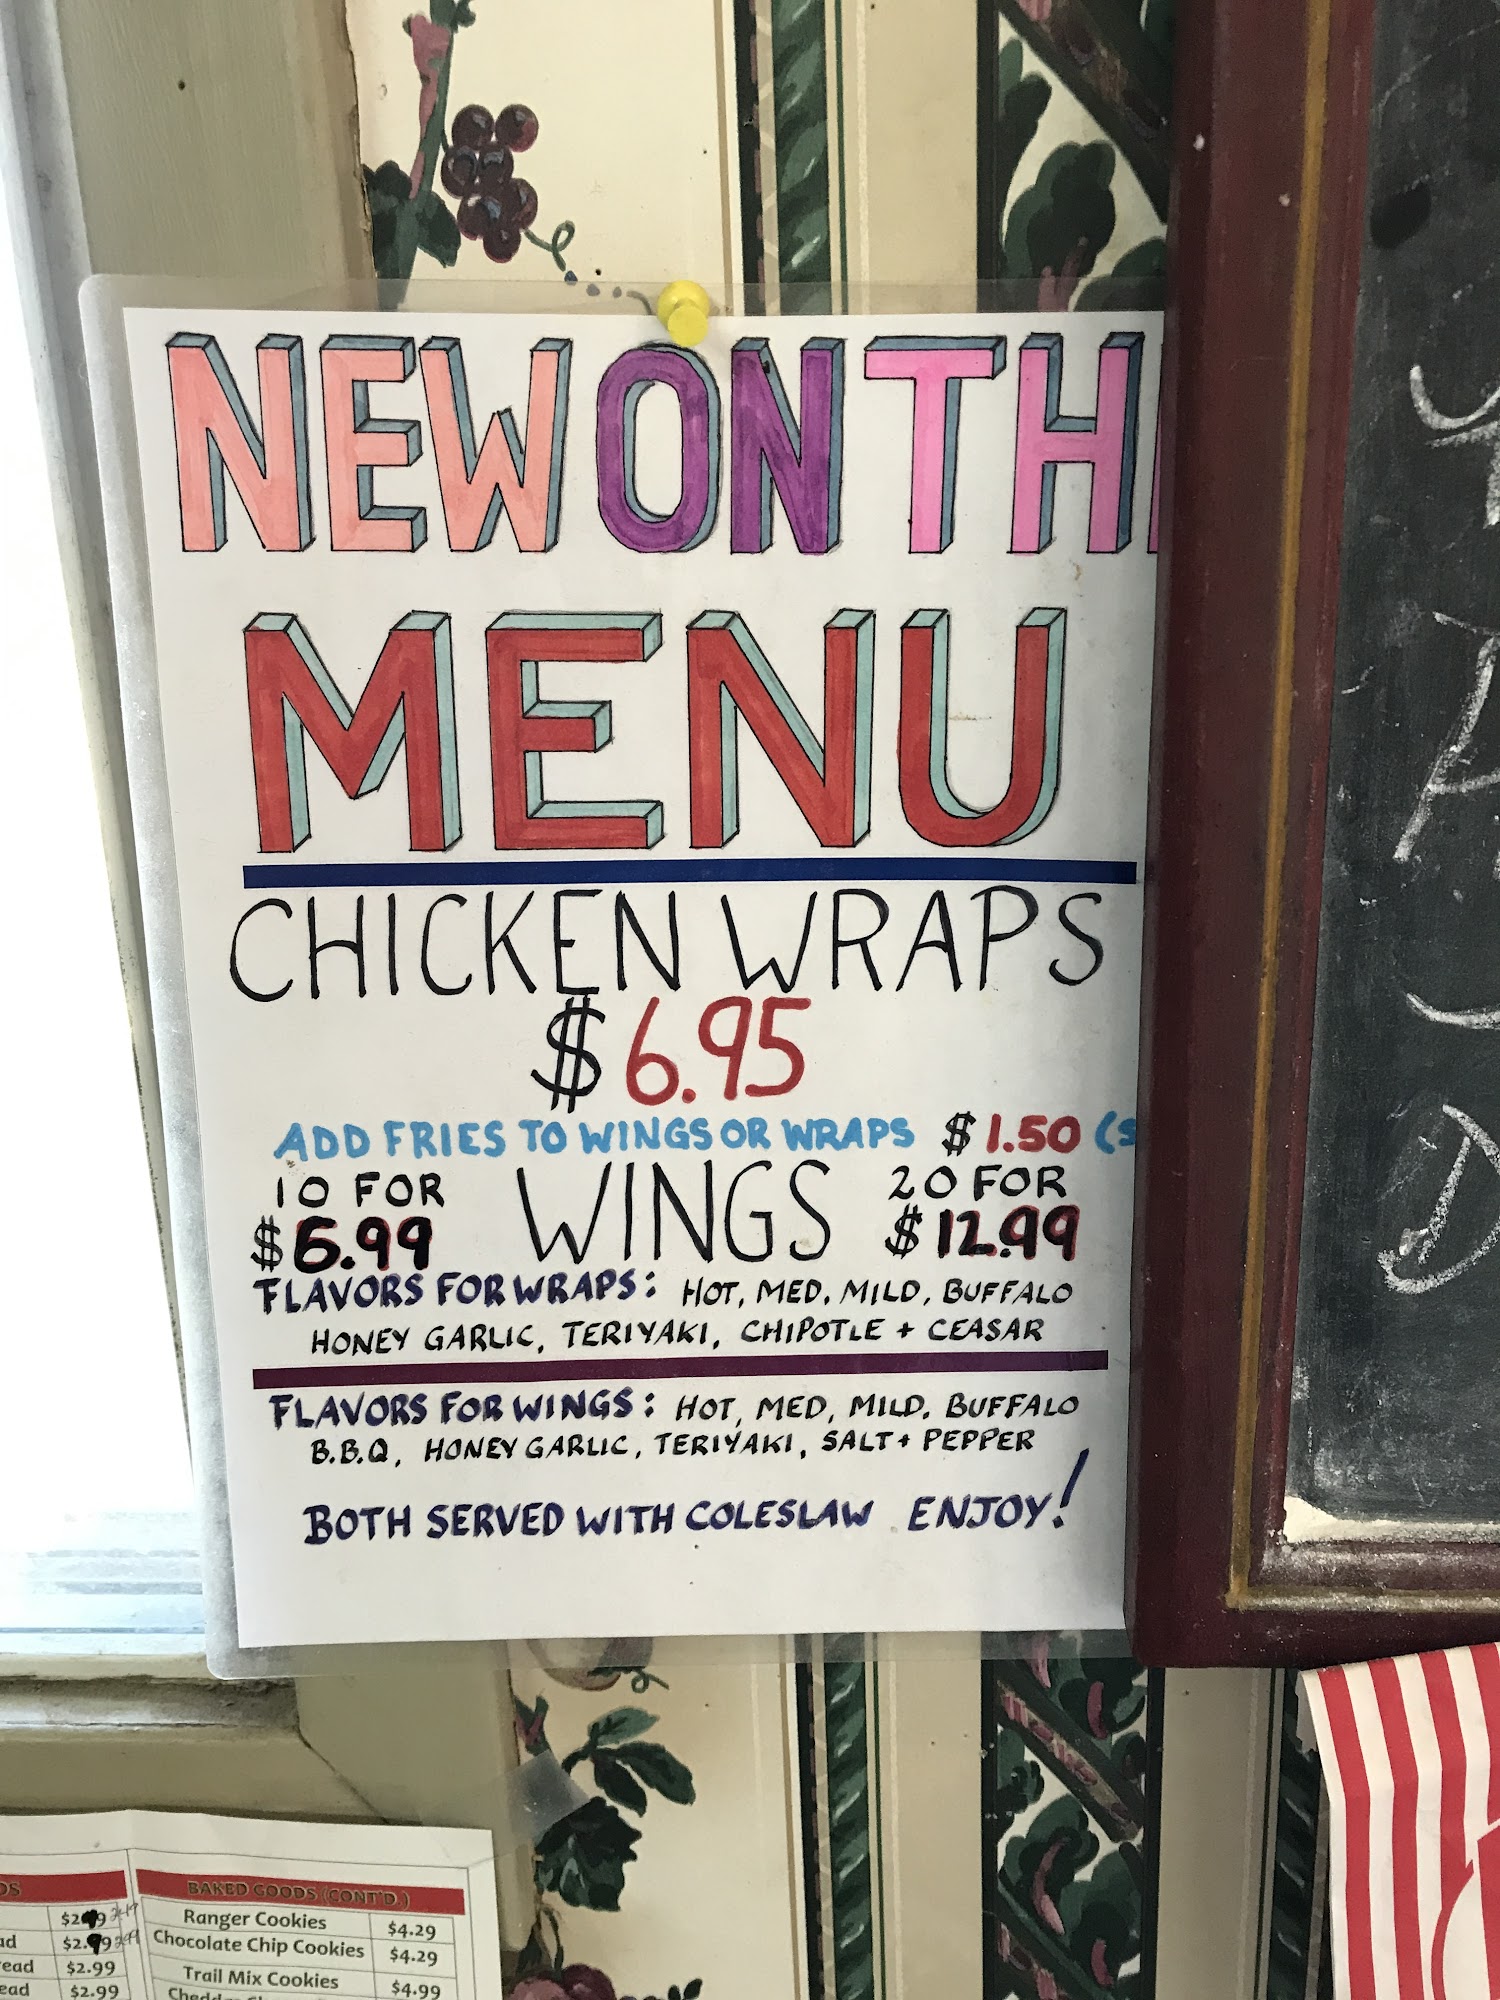 NEW ON TH
MENU
CHICKEN WRAPS
$6.95
ADD FRIES TO WINGS OR WRAPS $1.50 (S
10 FOR WINGS 20 FOR
$6.99 $12.99
FLAVORS FOR WRAPS: HOT, MED, MILD, BUFFALO
HONEY GARLIC, TERIYAKI, CHIPOTLE + CEASAR
FLAVORS FOR WINGS: HOT, MED, MILD, BUFFALO
B.B.Q, HONEY GARLIC, TERIYAKI, SALT + PEPPER
BOTH SERVED WITH COLESLAW ENJOY!
BAKED GOODS (CONT'D.)
Ranger Cookies $4.29
Chocolate Chip Cookies $4.29
ead $2.99 Trail Mix Cookies $4.99
ead $2.99
D